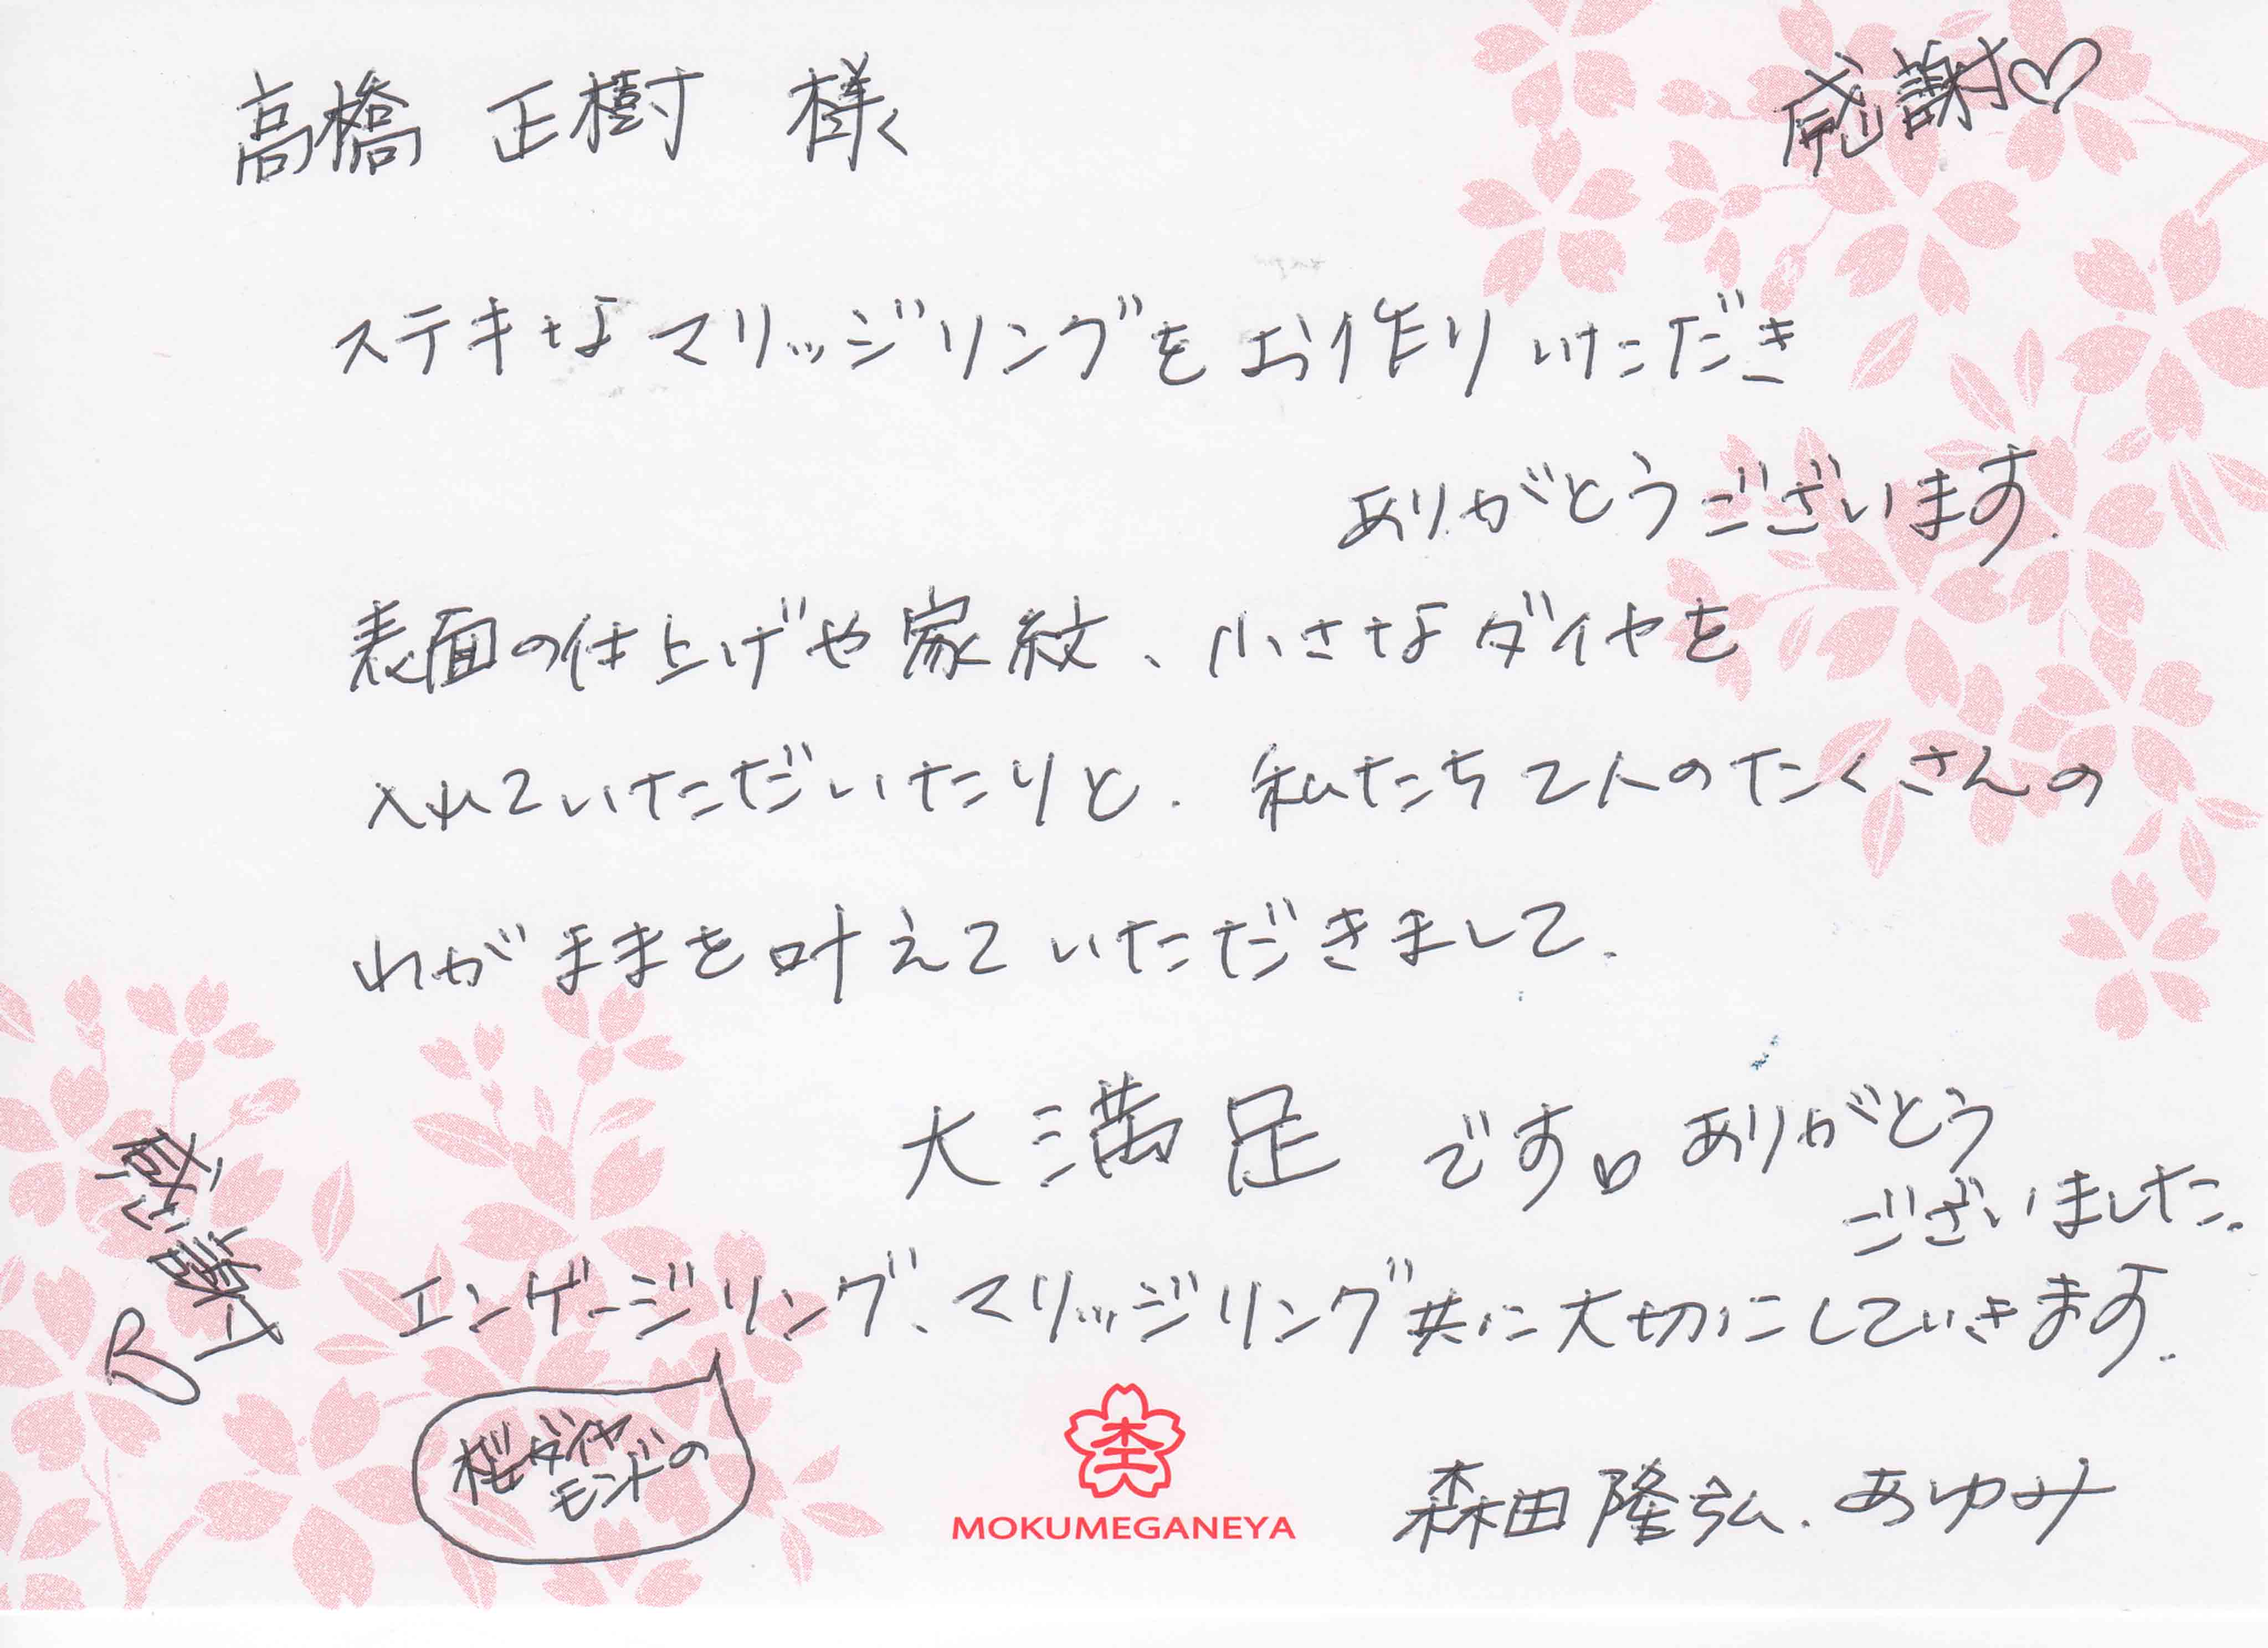 高橋 正樹 様
感謝♡
ステキなマリッジリングをお作りいただき
ありがとうございます.
表面の仕上げや家紋、小さなダイヤを
入れていただいたりと、私たち2人のたくさんの
わがままを叶えていただきまして、
大満足です♡ ありがとう
ございました.
エンゲージリング、マリッジリング共に大切にしていきます.
感謝♡
桜ダイヤ
モンドの
杢
MOKUMEGANEYA
森田隆弘、あゆみ